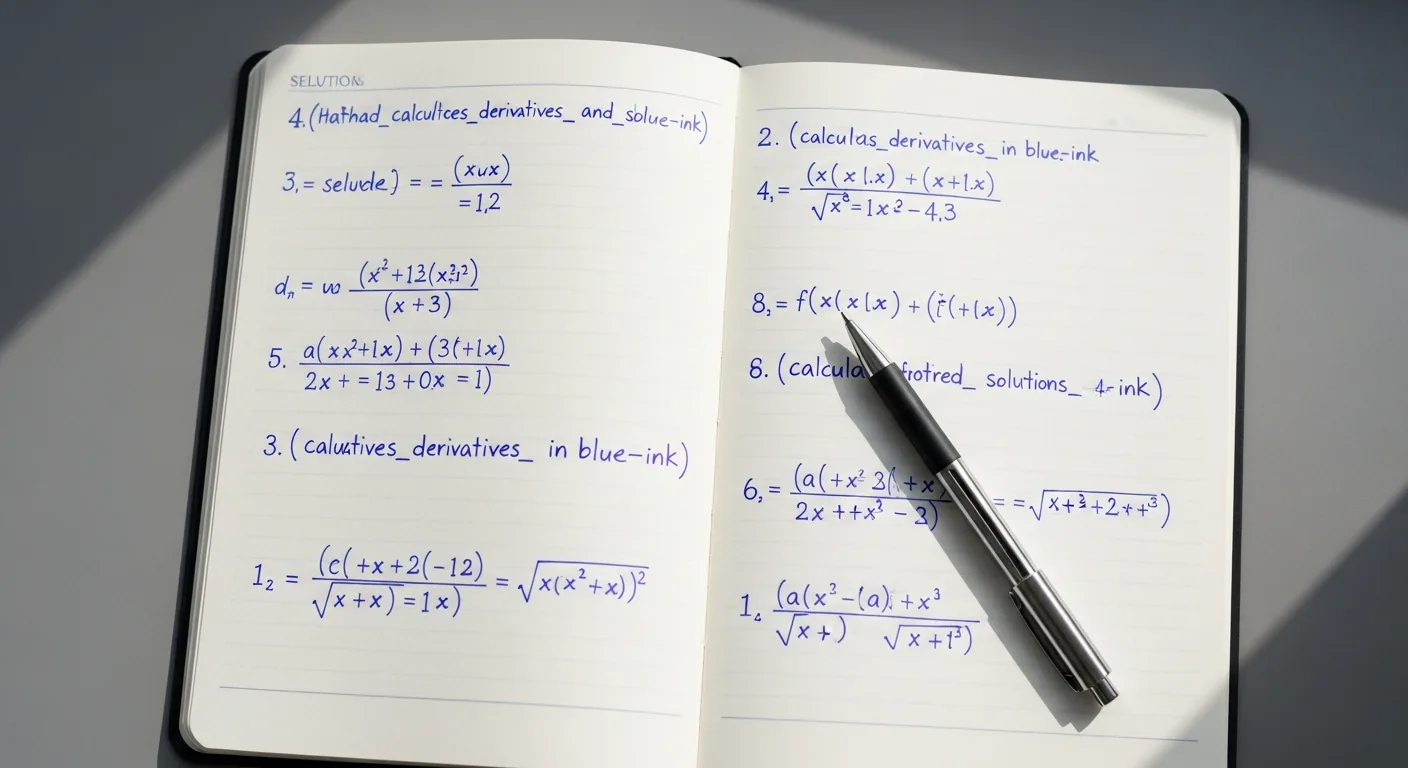 SELUTIONS
4. (Hathad_calcultces_derivatives_ and_solue-ink)
3,= selucle) = = (xux)
=1,2
dₙ = (x²+13(x
(x+3)
5. a(xx²+1x) + (3(+1x)
2x + = 13 +0x = 1)
3. (calutives_derivatives_ in blue-ink)
1₂ = (c(+x+2(-12) = √x(x²+x))²
√x+x) = 1x)
2. (calculas_derivatives_ in blue-ink
4,= (x(x 1.x) + (x+1.x)
√x⁸=1x²-4.3
8,= f(x(x1x) + (+(x))
8. (calcula frotred_ solutions_ 4-ink)
6,= (a(+x² 3( +x = =√x+³+2++³)
2x ++x² - 3)
1. (a(x³-(a) +x³
√x+) √x+1³)